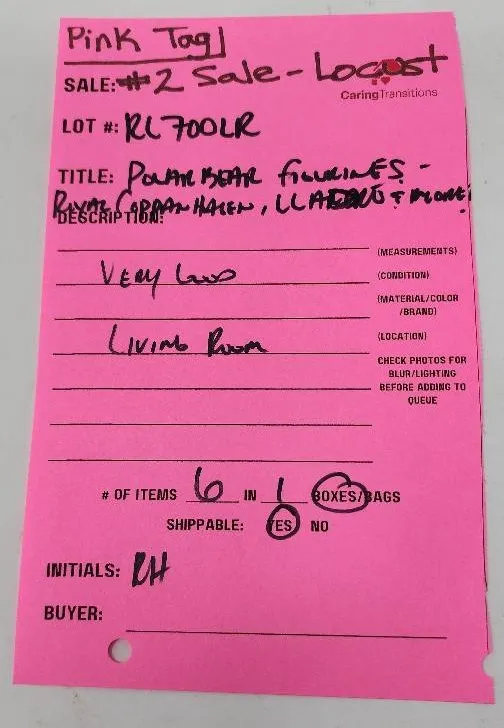 Pink Tag
SALE: #2 Sale - Locust
CaringTransitions
LOT #: RL700LR
TITLE: POLAR BEAR FIGURINES -
ROYAL COPPANHAGEN, LLADRO & MORE!
DESCRIPTION:
(MEASUREMENTS)
VERY GOOD (CONDITION)
(MATERIAL/COLOR
/BRAND)
LIVING ROOM (LOCATION)
CHECK PHOTOS FOR
BLUR/LIGHTING
BEFORE ADDING TO
QUEUE
# OF ITEMS 6 IN 1 BOXES/BAGS
SHIPPABLE: YES NO
INITIALS: RH
BUYER: